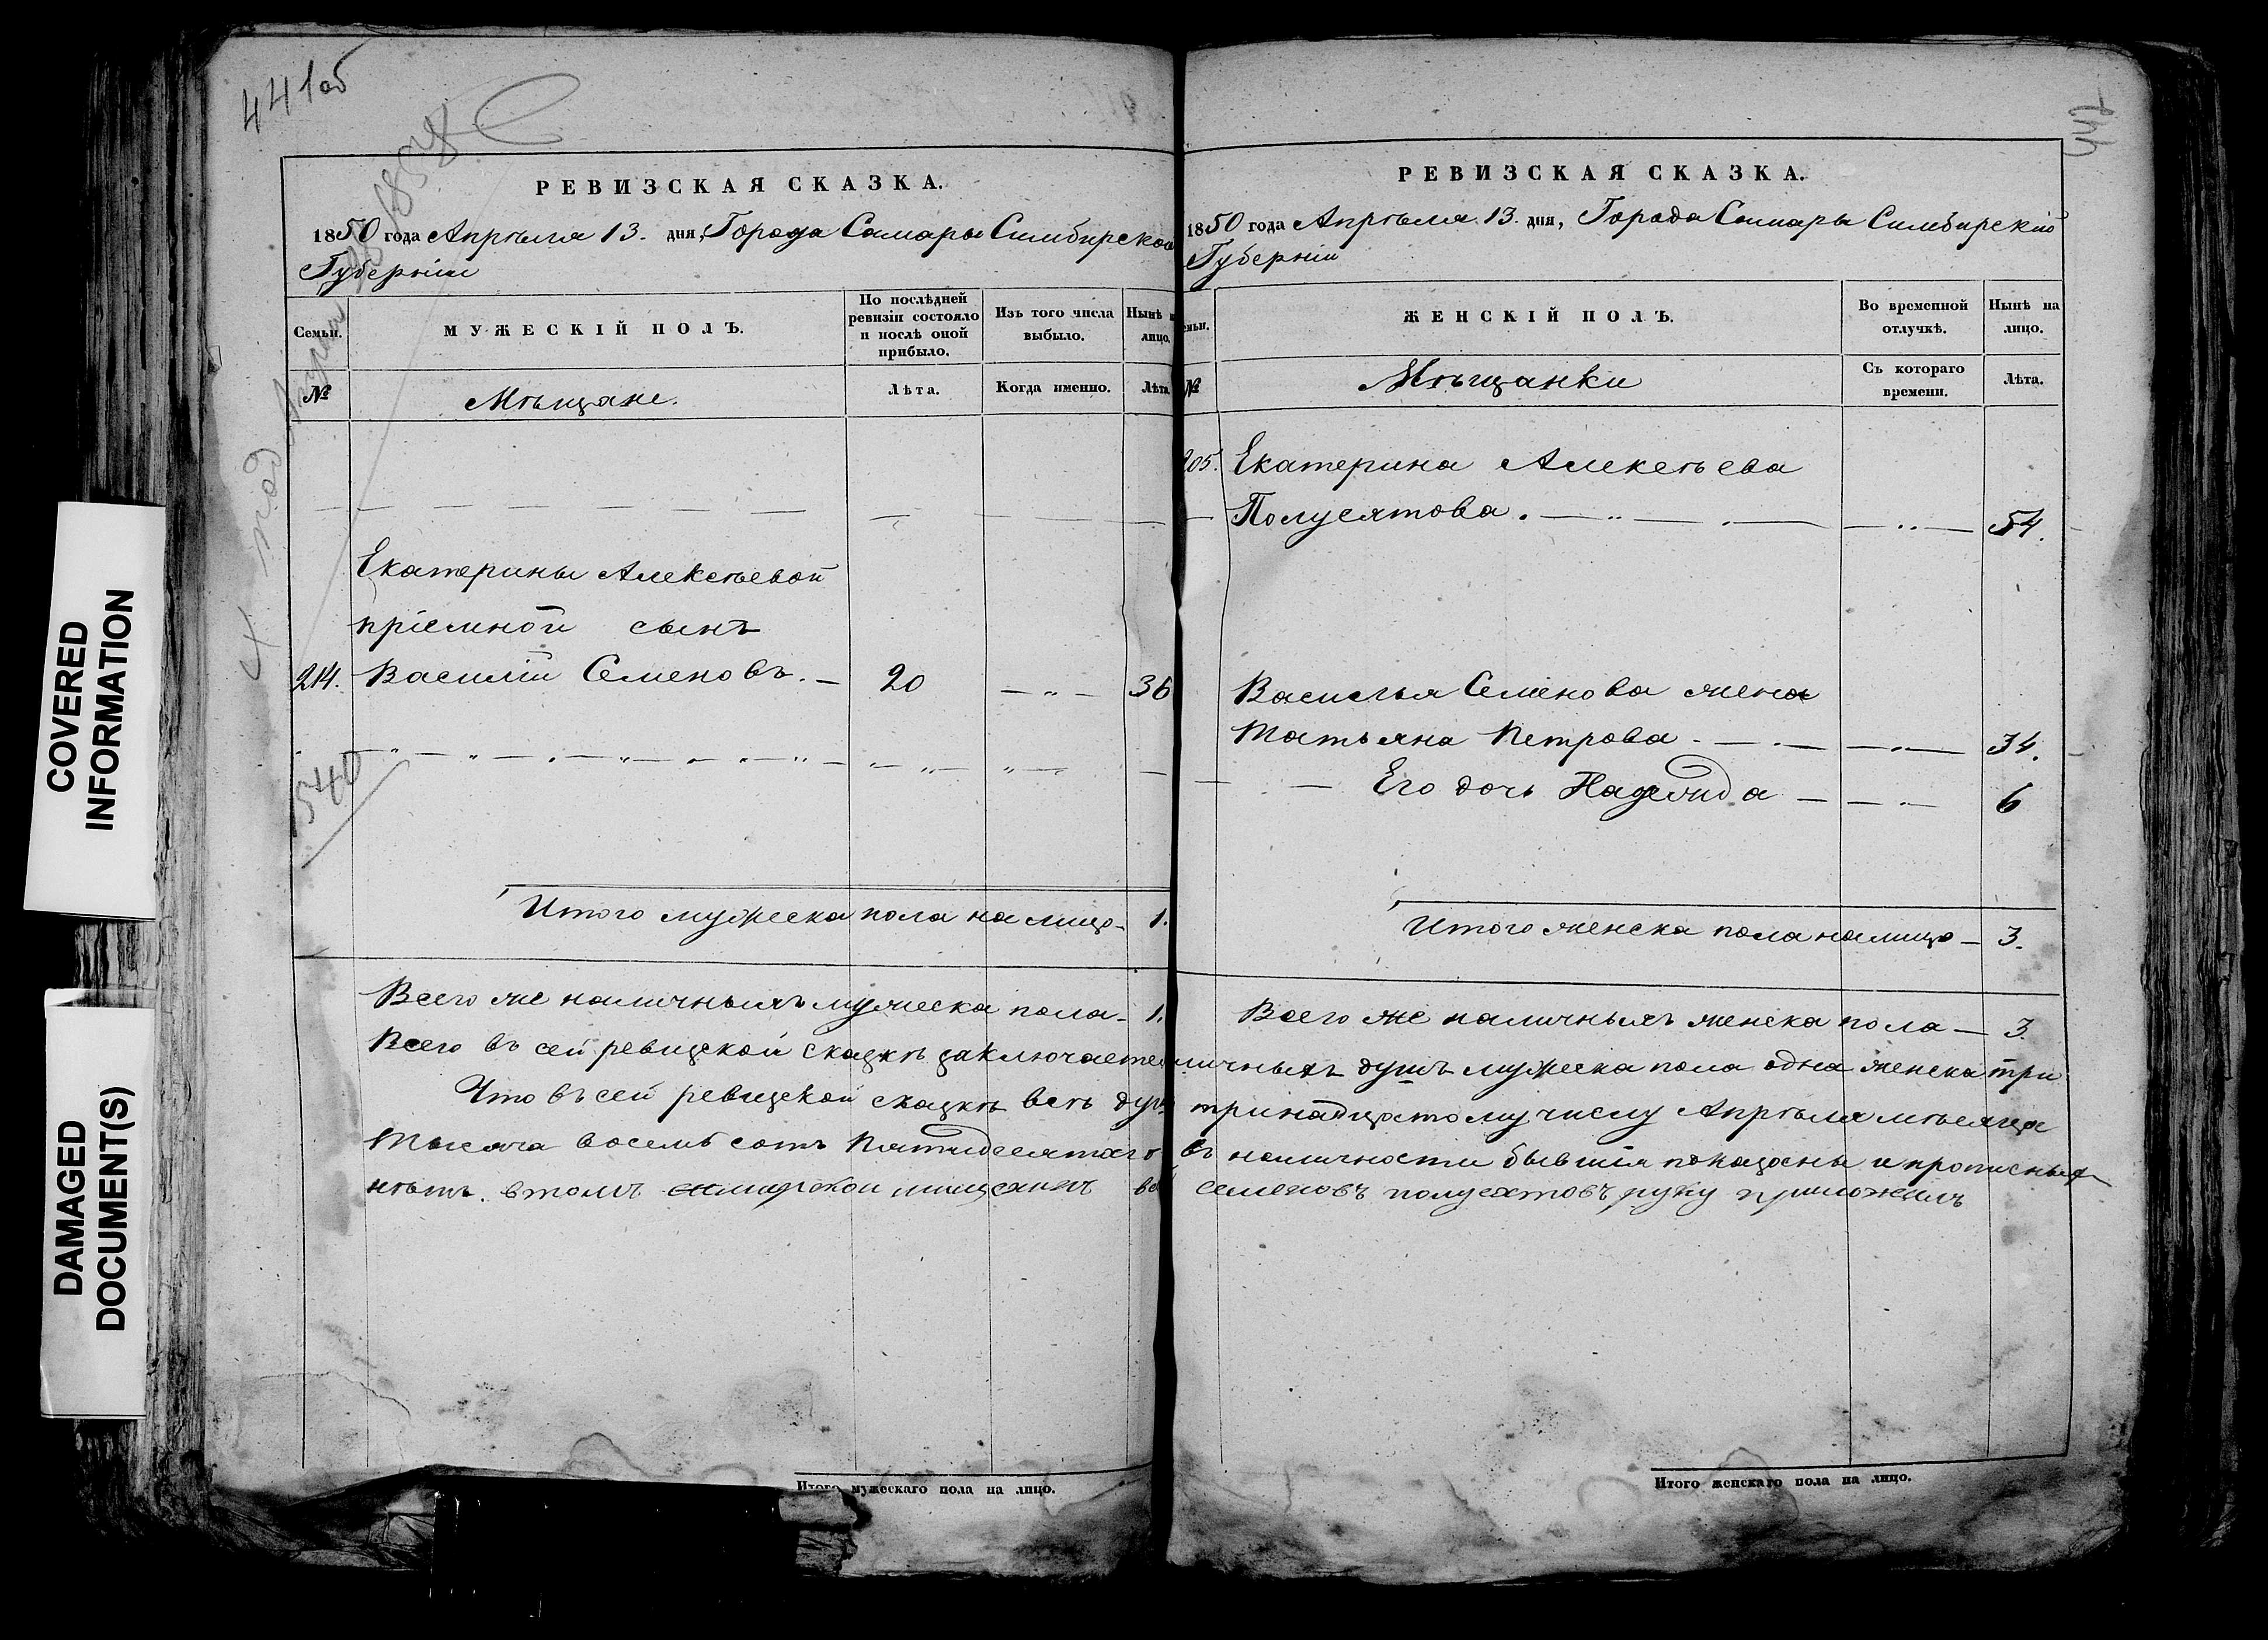 441об
РЕВИЗСКАЯ СКАЗКА.
1850 года Апрѣля 13. дня, Города Самары Симбирской
Губерніи
Семьи.
МУЖЕСКІЙ ПОЛЪ.
По послѣдней ревизіи состояло и послѣ оной прибыло.
Изъ того числа выбыло.
Нынѣ на лицо.
№
Мѣщане.
Лѣта.
Когда именно.
Лѣта.
Екатерины Алексѣевой
пріемной сынъ
214. Василій Семеновъ. — 20 — „ — 36
1540
Итого мужеска пола на лицо — 1.
Всего же наличныхъ мужеска пола — 1.
Всего въ сей ревизской сказкѣ заключается
Что въ сей ревизской сказкѣ всѣ души
Тысяча восемь сотъ Пятидесятаго
нѣтъ. втомъ самарской мищанинъ
Итого мужескаго пола на лицо.
442
РЕВИЗСКАЯ СКАЗКА.
1850 года Апрѣля 13. дня, Города Самары Симбирской
Губерніи
Семьи.
ЖЕНСКІЙ ПОЛЪ.
Во временной отлучкѣ.
Нынѣ на лицо.
№
Мѣщанки
Съ котораго времени.
Лѣта.
205. Екатерина Алексѣева
Полусятова. — „ — 54.
Василья Семенова жена
Татьяна Петрова — „ — 34.
Его дочь Надежда — — „ — 6
Итого женска пола налицо — 3.
Всего же наличныхъ женска пола — 3.
личныхъ душъ мужеска пола одна женска три
тринатцатому числу Апрѣля мѣсяца
въ наличности бывшія показаны и прописныхъ
семеновъ полусятовъ руку приложилъ
Итого женскаго пола на лицо.
COVERED
INFORMATION
DAMAGED
DOCUMENT(S)